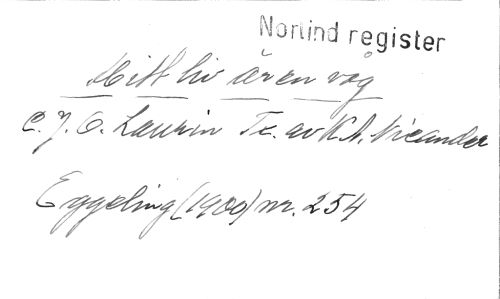 Norlind register
Mitt liv är en våg
C. J. O. Laurin Tz. av K. A. Nicander
Eggeling (1900) nr. 254